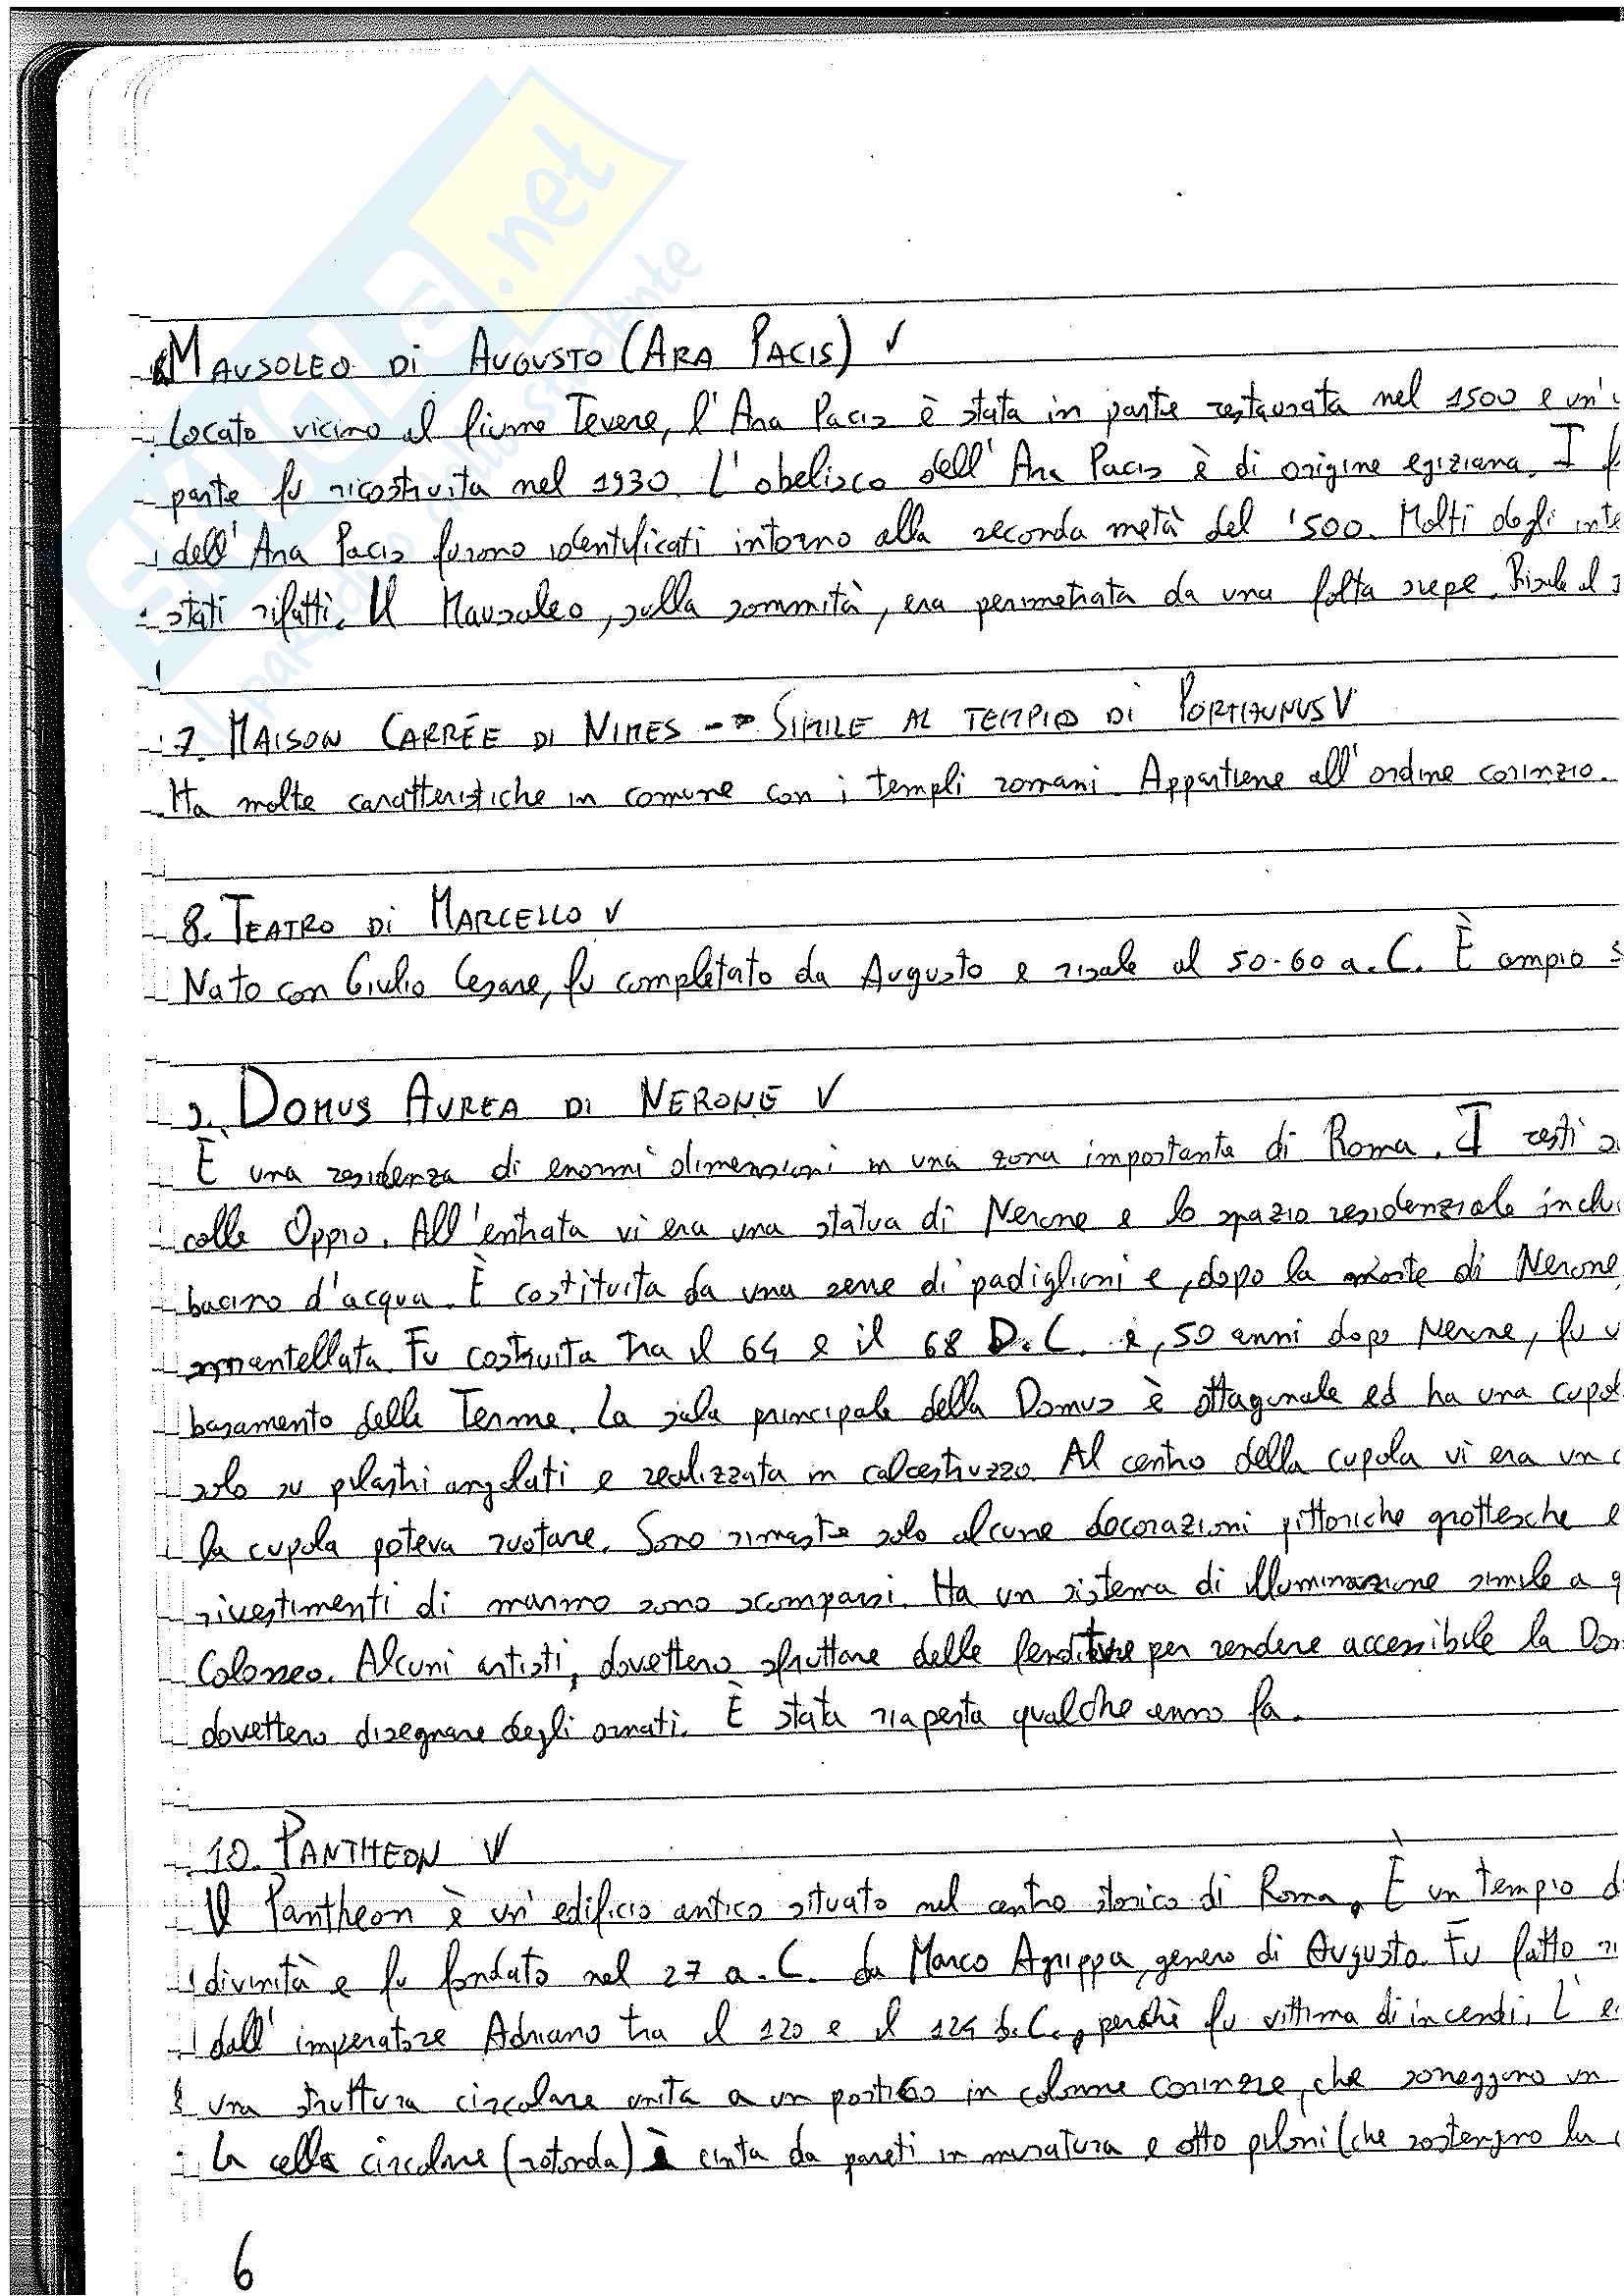 SKUOLA.net
il paradiso dello studente
MAUSOLEO DI AUGUSTO (ARA PACIS) V
Locato vicino al fiume Tevere, l'Ara Pacis è stata in parte restaurata nel 1500 e un'
parte fu ricostruita nel 1930. L'obelisco dell'Ara Pacis è di origine egiziana. I
dell'Ara Pacis furono identificati intorno alla seconda metà del '500. Molti degli
stati rifatti. Il Mausoleo, sulla sommità, era perimetrata da una folta siepe. Risale al
7. MAISON CARRÉE DI NIMES --> SIMILE AL TEMPIO DI PORTHUNUS V
Ha molte caratteristiche in comune con i templi romani. Appartiene all'ordine corinzio.
8. TEATRO DI MARCELLO V
Nato con Giulio Cesare, fu completato da Augusto e risale al 50-60 a.C. È ampio
9. DOMUS AUREA DI NERONE V
È una residenza di enormi dimensioni in una zona importante di Roma. I resti
colle Oppio. All'entrata vi era una statua di Nerone e lo spazio residenziale
bacino d'acqua. È costituita da una serie di padiglioni e, dopo la morte di Nerone,
smantellata. Fu costruita tra il 64 e il 68 D.C. e, 50 anni dopo Nerone, fu
basamento delle Terme. La sala principale della Domus è ottagonale ed ha una
solo su pilastri angolati e realizzata in calcestruzzo. Al centro della cupola vi era un
la cupola poteva ruotare. Sono rimaste solo alcune decorazioni pittoriche grottesche e
rivestimenti di marmo sono scomparsi. Ha un sistema di illuminazione simile a
Colosseo. Alcuni artisti, dovettero sfruttare delle fenditure per rendere accessibile la
dovettero disegnare degli ornati. È stata riaperta qualche anno fa.
10. PANTHEON V
Il Pantheon è un'edificio antico situato nel centro storico di Roma. È un tempio
divinità e fu fondato nel 27 a.C. da Marco Agrippa, genero di Augusto. Fu fatto
dall'imperatore Adriano tra il 120 e il 124 d.C., perchè fu vittima di incendi. L'
una struttura circolare unita a un portico in colonne corinzie, che sorreggono un
La cella circolare (rotonda) è cinta da pareti in muratura e otto piloni (che sostengono la
6